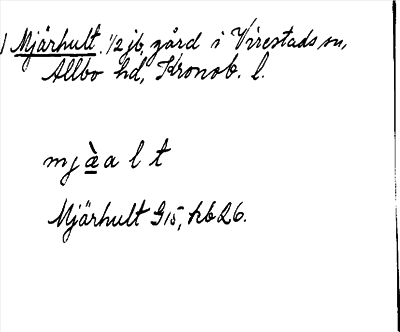 Mjärhult. 1/2 jb, gård i Virestads sn,
Allbo hd, Kronob. l.
mj à a l t
Mjärhult G15, kb 26.